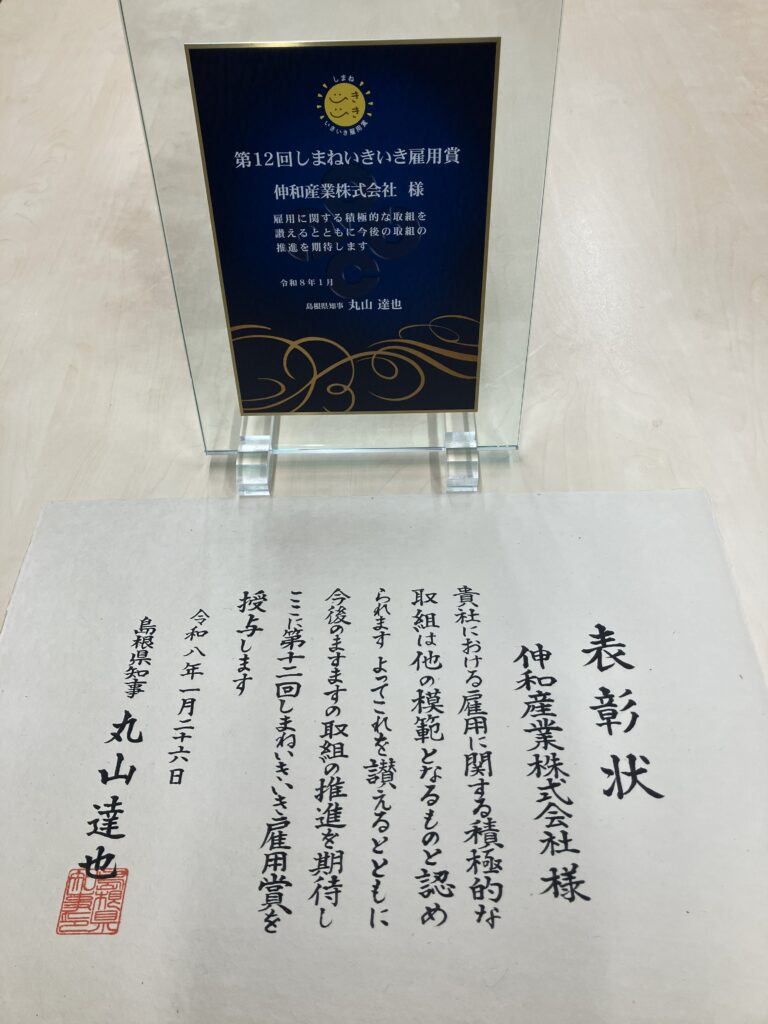 しまね
いきいき
いきいき雇用賞
第12回しまねいきいき雇用賞
伸和産業株式会社 様
雇用に関する積極的な取組を
讃えるとともに今後の取組の
推進を期待します
令和8年1月
島根県知事 丸山 達也
表彰状
伸和産業株式会社 様
貴社における雇用に関する積極的な
取組は他の模範となるものと認め
られます よってこれを讃えるとともに
今後のますますの取組の推進を期待し
ここに第十二回しまねいきいき雇用賞を
授与します
令和八年一月二十六日
島根県知事 丸山達也
島根県
知事印